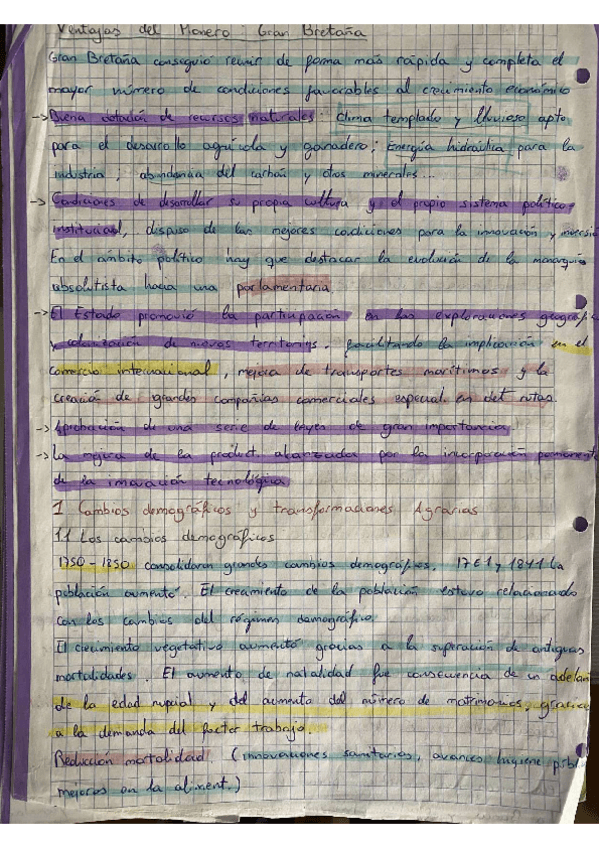 Ventajas del Pionero: Gran Bretaña
Gran Bretaña consiguió reunir de forma más rápida y completa el
mayor número de condiciones favorables al crecimiento económico
→ Buena dotación de recursos naturales: Clima templado y lluvioso apto
para el desarrollo agrícola y ganadero; Energía hidráulica para la
industria; abundancia del carbón y otros minerales...
→ Condiciones de desarrollar su propia cultura y el propio sistema político-
institucional, dispuso de las mejores condiciones para la innovación y inversión
En el ámbito político hay que destacar la evolución de la monarquía
absolutista hacia una parlamentaria.
→ El Estado promovió la participación en las exploraciones geográfi
y colonización de nuevos territorios, facultando la implicación en el
comercio internacional, mejora de transportes marítimos y la
creación de grandes compañías comerciales especial. en det rutas.
→ Aprobación de una serie de leyes de gran importancia
→ La mejora de la product. alcanzada por la incorporación permanente
de la innovación tecnológica
1 Cambios demográficos y transformaciones Agrarias
1.1 Los cambios demográficos
1750-1850 consolidaron grandes cambios demográficos. 1761 y 1841 la
población aumentó. El crecimiento de la población estuvo relacionado
con los cambios del régimen demográfico.
El crecimiento vegetativo aumentó gracias a la superación de antiguas
mortalidades. El aumento de natalidad fue consecuencia de un adelan
de la edad nupcial y del aumento del número de matrimonios, gracias
a la demanda del factor trabajo.
Reducción mortalidad. (innovaciones sanitarias, avances higiene públ
mejoras en la aliment.)